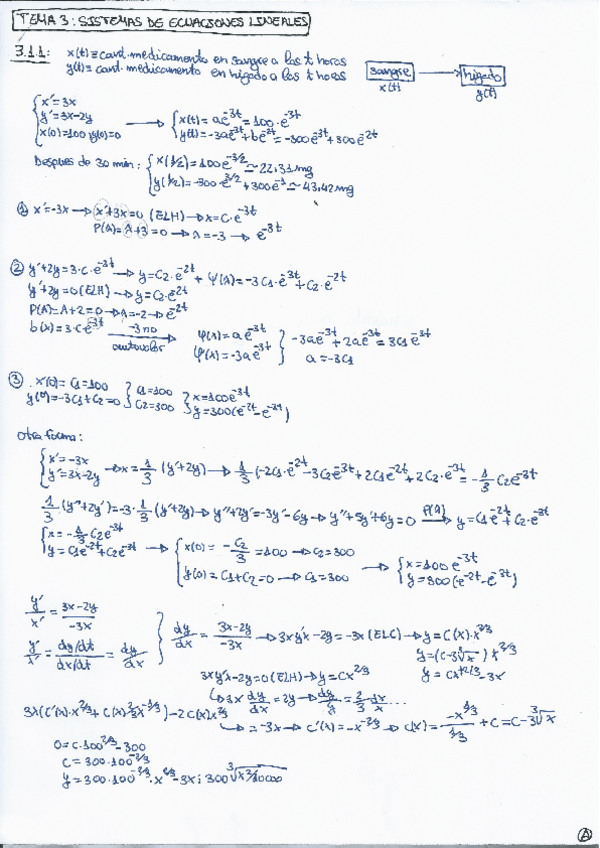 TEMA 3: SISTEMAS DE ECUACIONES LINEALES
3.1.1: x(t) ≡ cant. medicamento en sangre a las t horas
y(t) ≡ cant. medicamento en hígado a las t horas
sangre → hígado
x(t) y(t)
{ x' = 3x
y' = 3x-2y
x(0)=100 y(0)=0 → { x(t) = ae^-3t = 100·e^-3t
y(t) = -3ae^-3t + be^-2t = -300e^-3t + 300e^-2t
Después de 30 min: { x(1/2) = 100e^-3/2 ≃ 22,31mg
y(1/2) = -300·e^-3/2 + 300e^-1 ≃ 43,42mg
① x' = -3x → x'+3x=0 (ELH) → x = C·e^-3t
P(λ) = λ+3 = 0 → λ = -3 → e^-3t
② y'+2y = 3·C·e^-3t → y = C2·e^-2t + φ(λ) = -3C1·e^-3t + C2·e^-2t
y'+2y = 0 (ELH) → y = C2·e^-2t
P(λ) = λ+2 = 0 → λ = -2 → e^-2t
b(x) = 3·C·e^-3t -3 no autovalor → φ(x) = a e^-3t
φ'(x) = -3a e^-3t } -3ae^-3t + 2ae^-3t = 3C1e^-3t
a = -3C1
③ x(0) = C1 = 100
y(0) = -3C1+C2 = 0 } C1 = 100
C2 = 300 } x = 100e^-3t
y = 300(e^-2t - e^-3t)
Otra forma:
{ x' = -3x
y' = 3x-2y → x = 1/3 (y'+2y) → 1/3 (-2C1·e^-2t - 3C2e^-3t + 2C1e^-2t + 2C2·e^-3t = -1/3 C2e^-3t
1/3 (y''+2y') = -3·1/3 (y'+2y) → y''+2y' = -3y'-6y → y''+5y'+6y = 0 P(λ) → y = C1e^-2t + C2·e^-3t
{ x = -1/3 C2e^-3t
y = C1e^-2t + C2e^-3t → { x(0) = -C2/3 = 100 → C2 = 300
y(0) = C1+C2 = 0 → C1 = 300 → { x = 100e^-3t
y = 300(e^-2t - e^-3t)
y'/x' = 3x-2y/-3x
y'/x' = dy/dt / dx/dt = dy/dx } dy/dx = 3x-2y/-3x → 3xy'x-2y = -3x (ELC) → y = C(x)·x^2/3
y = (C-3∛x) x^2/3
y = Cx^2/3 - 3x
3xy'x-2y = 0 (ELH) → y = Cx^2/3
↳ 3x dy/dx = 2y → dy/y = 2/3 dx/x ...
3x(C'(x)·x^2/3 + C(x) 2/3 x^-1/3) - 2C(x)x^2/3
↳ = -3x → C'(x) = -x^-2/3 → C(x) = -x^1/3 / 1/3 + C = C-3∛x
0 = C·100^2/3 - 300
C = 300·100^-2/3
y = 300·100^-2/3·x^2/3 - 3x; 300∛x²/10000
A